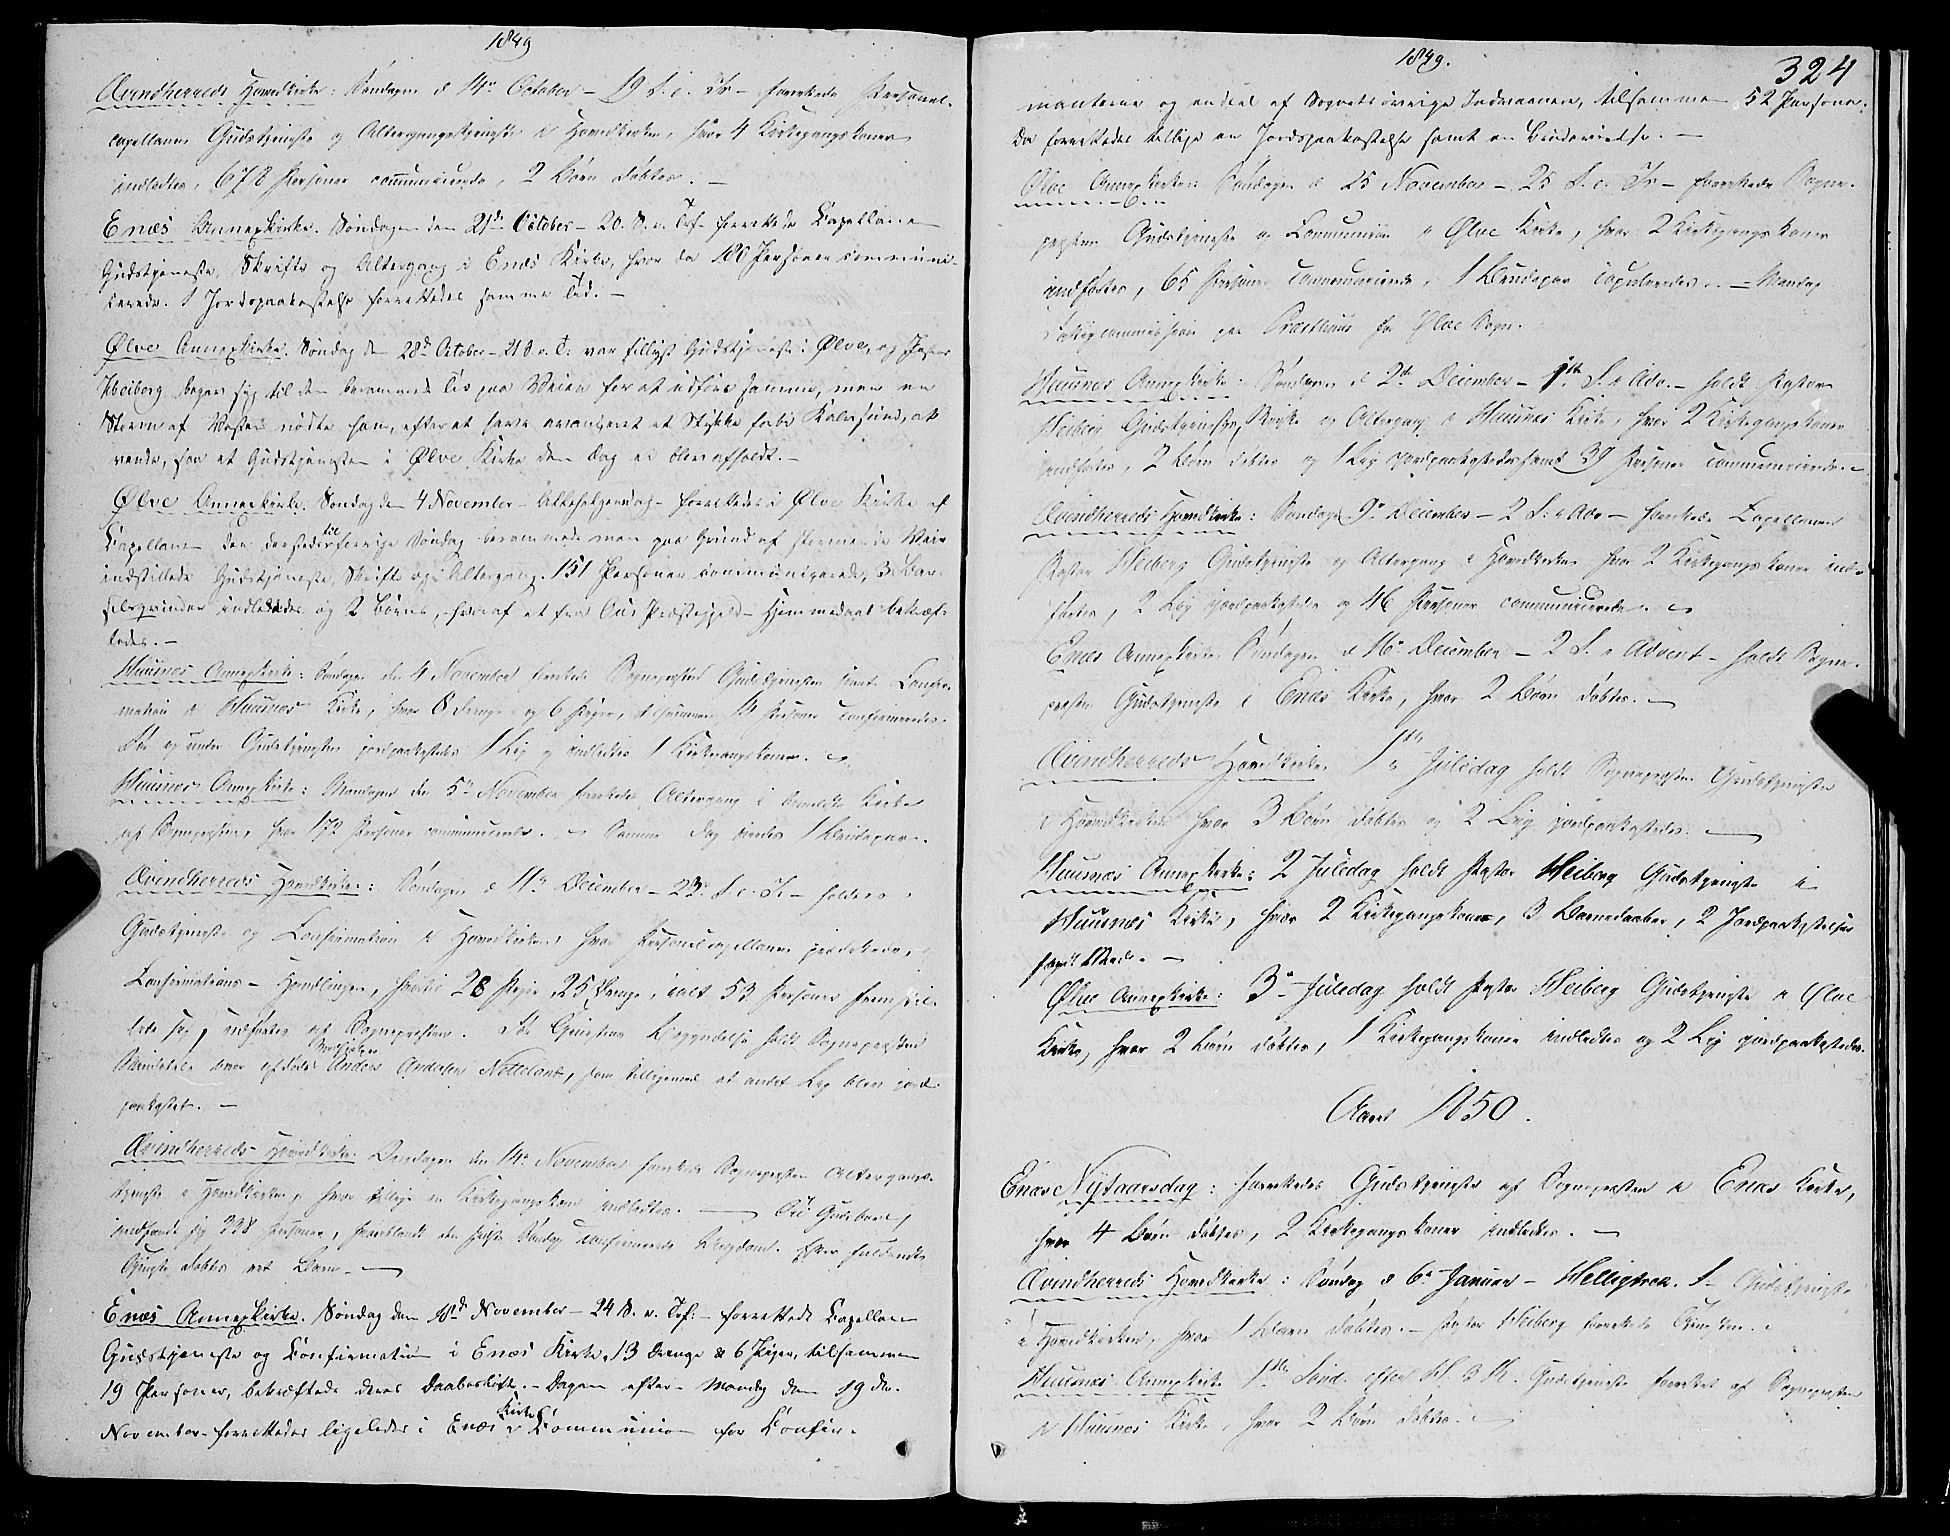 1849
Qvindherreds Hovedkirke: Søndagen d 14de October - 19 S. e. Tr - forrettede Personel-
capellanen Gudstjeneste og Altergangstjeneste i Hovedkirken, hvor 4 Kirkegangskoner
indledtes, 678 Personer communicerede, 2 Børn døbtes. -
Enæs Annexkirke. Søndagen den 21de October - 20. S. e. Tref. forrettede Capellanen
Gudstjeneste, Skrifte og Altergang i Enæs Kirke, hvor da 100 Personer communi-
cerede. 1 Jordspaakastelse forrettedes samme Tid. -
Ølve Annexkirke. Søndag den 28de October - 21 S. e. T. var tillyst Gudstjeneste i Ølve, og Pastor
Heiberg begav sig til den berammede Tid paa Veien for at udføre samme, men en
Storm af Vesten nødte ham, efter at have avanceret et Stykke forbi Kalvsund, at
vende, saa at Gudstjenesten i Ølve Kirke den Dag ei blev afholdt. -
Ølve Annexkirke. Søndag den 4 November - Allehelgensdag - forrettedes i Ølve Kirke af
Capellanen den dersteds til forrige Søndag berammede men paa Grund af stormende Veir
indstillede Gudstjeneste, Skrifte og Altergang. 151 Personer communicerede, 3 Bar-
selqvinder indlededes og 2 Børns, hvoraf et fra Ous Præstegjeld - Hjemmedaab bekræf-
tedes. -
Huusnes Annexkirke: Søndagen den 4 November forrettede Sognepresten Gudstjenesten samt Confir-
mation i Huusnes Kirke, hvor 8 Drenge og 6 Piger, tilsammen 14 Personer confirmeredes.
Før og under Gudstjenesten jordpaakastedes 1 Lig og indledtes 1 Kirkegangskone.
Huusnes Annexkirke: Mandagen den 5te November forrettedes Altergang i bemeldte Kirke
af Sognepresten, hvor 172 Personer communicerede. - Samme Dag viedes 1 Brudepar.
Qvindherreds Hovedkirke: Søndagen d 11te December - 23de S. e. Tr - holdtes
Gudstjeneste og Confirmation i Hovedkirken, hvor Personelcapellanen prædikede,
Confirmations-Handlingen, hvortil 28 Piger 25 Drenge, ialt 53 Personer fremstil-
lede sig, udførtes af Sognepresten. Før Gudstjenestens Begyndelse holdt Sognepresten
Mindetale over afdøde Anders Andersen Netteland, som tilligemed et andet Lig blev jord-
paakastet. -
Qvindherreds Hovedkirke. Onsdagen den 14de November forrettede Sognepresten Altergangs-
tjeneste i Hovedkirken, hvor tillige en Kirkegangskone indledtes. - Til Guds Bord
indfandt sig 228 Personer, hvoriblandt den sidste Søndag confirmerede Ungdom. Efter fuldendt
Tjeneste døbtes eet Barn. -
Enæs Annexkirke. Søndag den 18de November - 24 S. e. Tref. - forrettede Capellanen
Gudstjeneste og Confirmation i Enæs Kirke. 13 Drenge & 6 Piger, tilsammen
19 Personer, bekræftede deres Daabesløfte. - Dagen efter - Mandag den 19de
November - forrettedes ligeledes i Enæs Kirke Communion for Confir-
1849.
324
manterne og endeel af Sognets øvrige Indvaanere, tilsammen 52 Personer.
Da forrettedes tillige en Jordspaakastelse samt en Brudevielse. -
Ølve Annexkirke: Søndagen d 25 November - 25 S. e. Tr - forrettede Sogne-
presten Gudstjeneste og Communion i Ølve Kirke, hvor 2 Kirkegangskoner
indførtes, 65 Personer communicerede, 1 Brudepar copuleredes. - Mandag
Forligscommission paa Præsthuus for Ølve Sogn.
Huusnes Annexkirke: Søndagen d 2den December - 1ste S. i Adv. - holdt Pastor
Heiberg Gudstjeneste, Skrifte og Altergang i Huusnes Kirke, hvor 2 Kirkegangskoner
indførtes, 2 Børn døbtes og 1 Lig jordpaakastedes samt 39 Personer communicerede. -
Qvindherreds Hovedkirke: Søndagen 9de December - 2 S. i Adv - forrettede Capellanen
Pastor Heiberg Gudstjeneste og Altergang i Hovedkirken hvor 2 Kirkegangskoner ind-
førtes, 2 Lig jordpaakastedes og 46 Personer communicerede.
Enæs Annexkirke. Søndagen d 16de December - 2 S. i Advent - holdt Sogne-
presten Gudstjeneste i Enæs Kirke, hvor 2 Børn døbtes. -
Qvindherreds Hovedkirke. 1ste Juledag holdt Sognepresten Gudstjeneste
i Hovedkirken hvor 3 Børn døbtes og 2 Lig jordpaakastedes. -
Huusnes Annexkirke: 2 Juledag holdt Pastor Heiberg Gudstjeneste i
Huusnes Kirke, hvor 2 Kirkegangskoner, 3 Barnedaaber, 2 Jordpaakastelser
fandt Sted. -
Ølve Annexkirke: 3de Juledag holdt Pastor Heiberg Gudstjeneste i Ølve
Kirke, hvor 2 Børn døbtes, 1 Kirkegangskone indledtes og 2 Lig jordpaakastedes.
Aaret 1850.
Enæs Nytaarsdag: forrettedes Gudstjeneste af Sognepresten i Enæs Kirke,
hvor 4 Børn døbtes, 2 Kirkegangskoner indledtes. -
Qvindherreds Hovedkirke: Søndag d 6te Januar - Helligtrek. f - Gudstjeneste
i Hovedkirken, hvor 1 Barn døbtes. - Pastor Heiberg forrettede Tjenesten. -
Huusnes Annexkirke 1ste Sønd. efter H. 3 K. Gudstjeneste forrettet af Sognepresten
i Huusnes Kirke, hvor 2 Børn døbtes. -